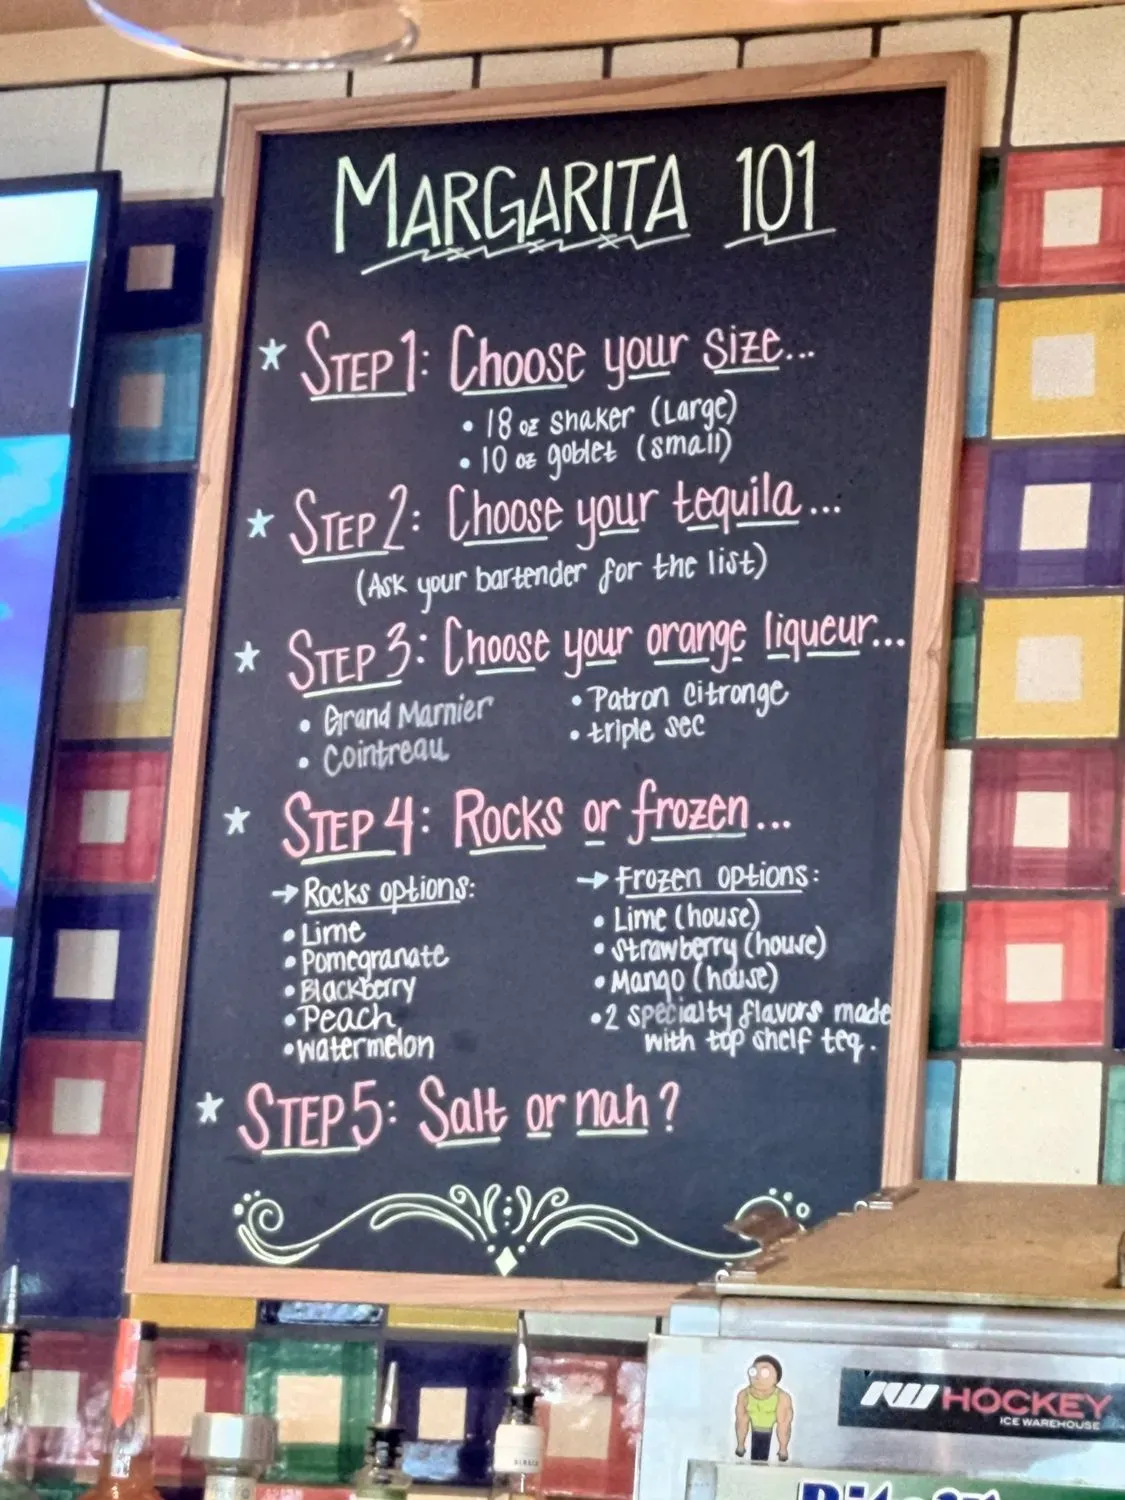 MARGARITA 101
STEP 1: Choose your size...
• 18 oz shaker (Large)
• 10 oz goblet (small)
STEP 2: Choose your tequila...
(Ask your bartender for the list)
STEP 3: Choose your orange liqueur...
• Grand Marnier
• Cointreau
• Patron Citronge
• triple sec
STEP 4: Rocks or frozen...
→ Rocks options:
• Lime
• Pomegranate
• Blackberry
• Peach
• Watermelon
→ Frozen options:
• Lime (house)
• Strawberry (house)
• Mango (house)
• 2 specialty flavors made
with top shelf teq.
STEP 5: Salt or nah?
IW HOCKEY
ICE WAREHOUSE